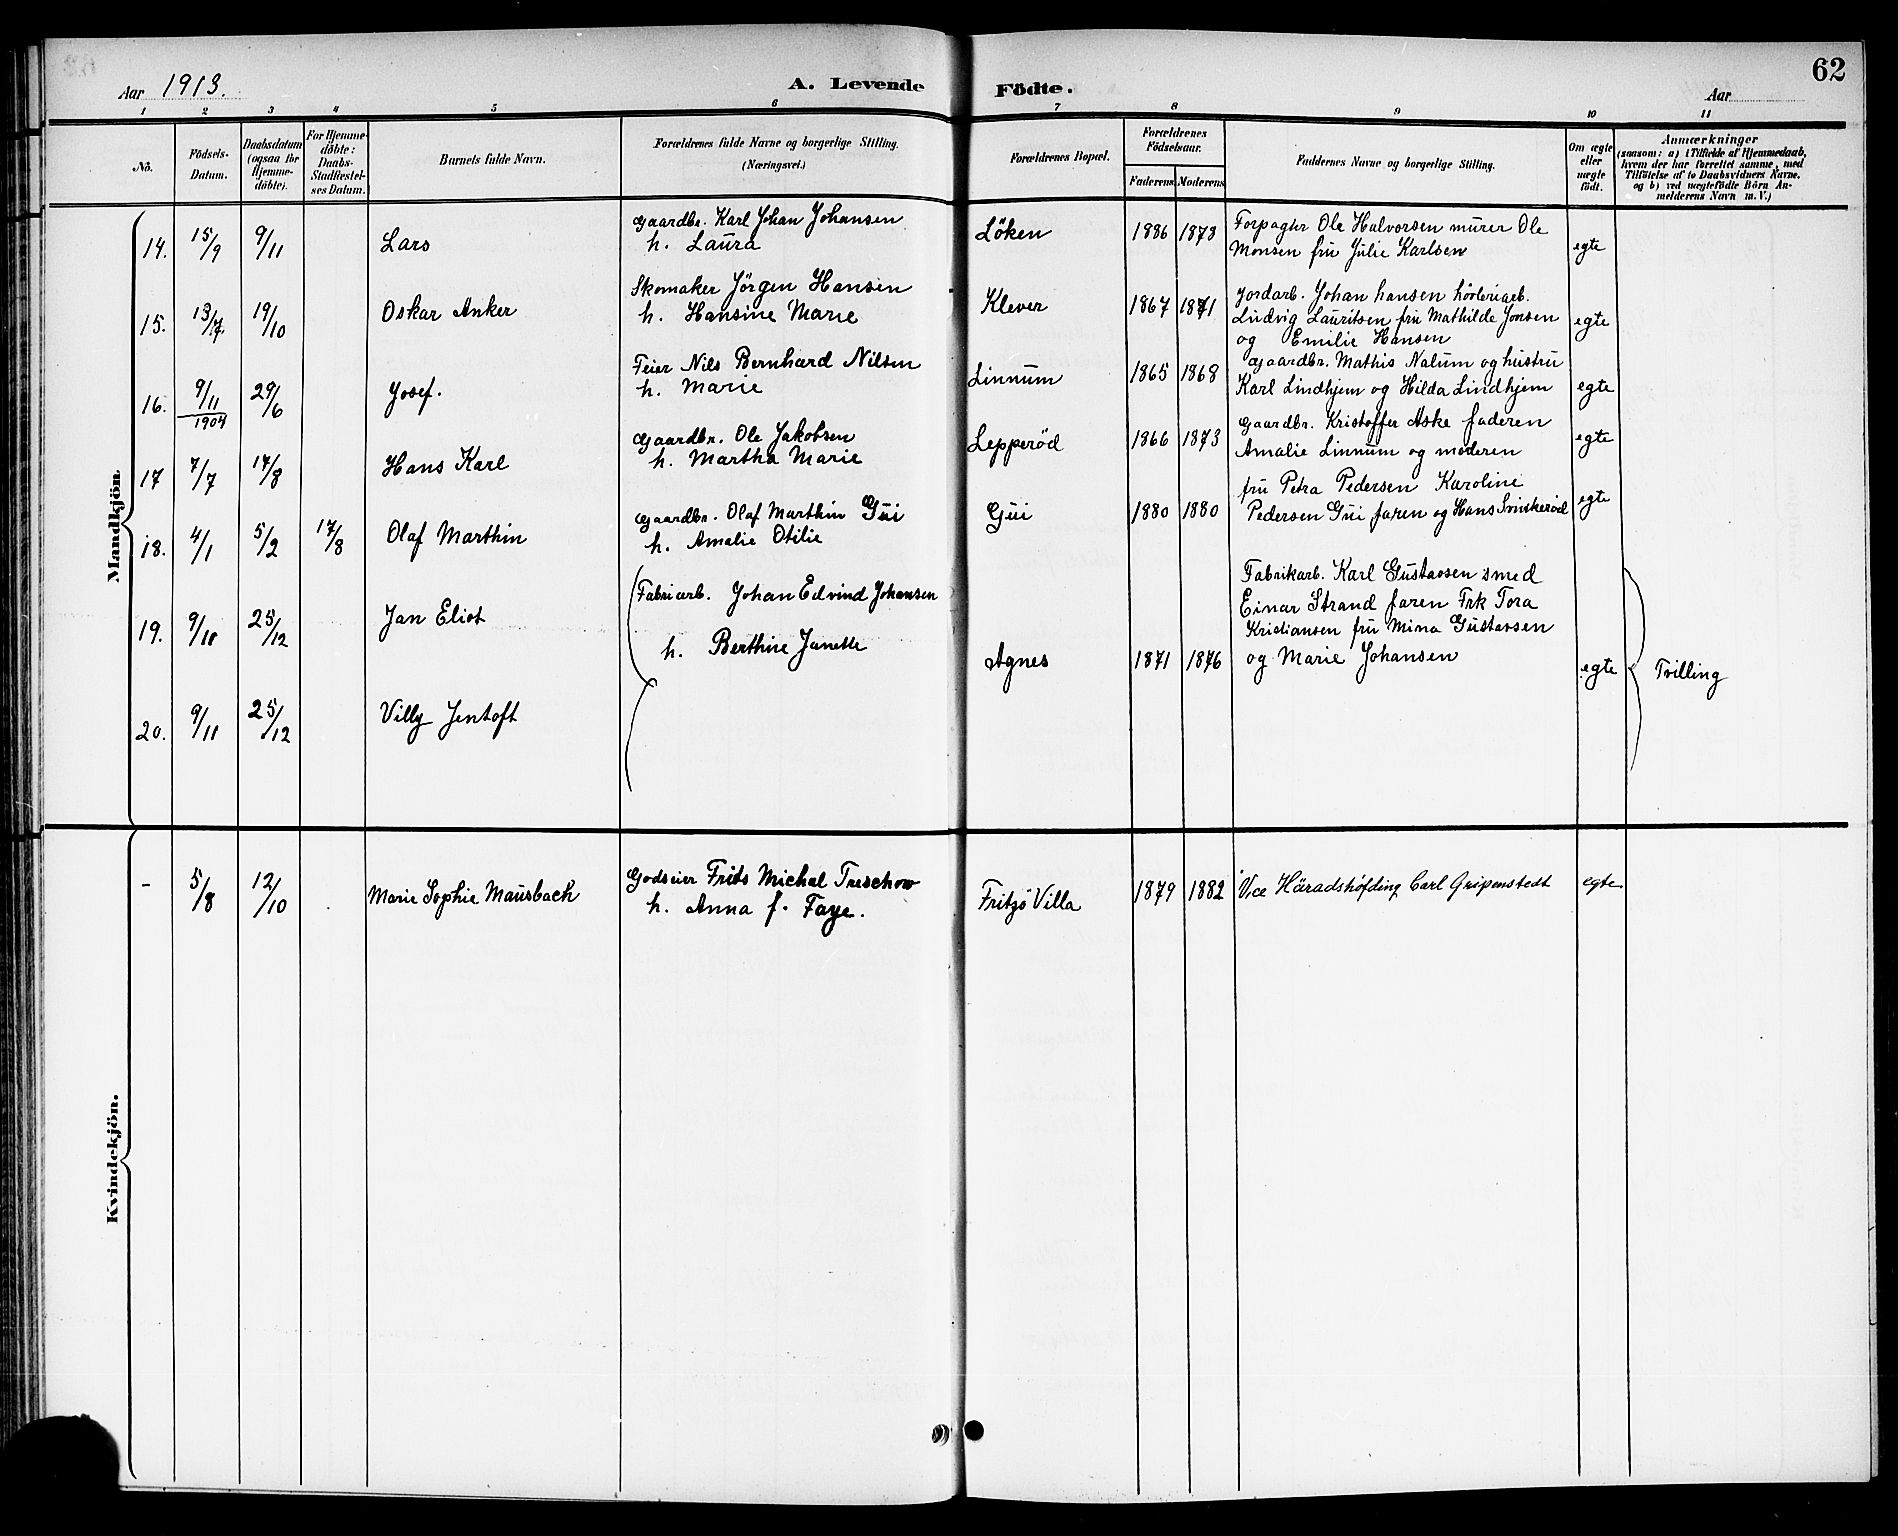 62
Aar 1913.
A. Levende Födte.
Aar
1 2 3 4 5 6 7 8 9 10 11
No.
Födsels-Datum.
Daabsdatum (ogsaa for Hjemme-döbte).
For Hjemme-döbte: Daabs-Stadfestel-ses Datum.
Barnets fulde Navn.
Forældrenes fulde Navne og borgerlige Stilling. (Næringsvei.)
Forældrenes Bopæl.
Forældrenes Födselsaar.
Faderens Moderens
Faddernes Navne og borgerlige Stilling.
Om ægte eller uægte födt.
Anmærkninger
(saasom: a) i Tilfælde af Hjemmedaab, hvem der har forrettet samme, med Tilföielse af to Daabsvidners Navne. og b) ved uægtefödte Börn An-melderens Navn m. V.)
Mandkjön.
14. 15/9 9/11 Lars
Gaardbr. Karl Johan Johansen
h. Laura
Löken 1886 1878
Forpagtr Ole Halvorsen murer Ole
Monsen fru Julie Karlsen
egte
15. 13/7. 19/10 Oskar Anker
Skomaker Jörgen Hansen
h. Hansine Marie
Klever 1867 1871
Jordarb. Johan hansen
Ludvig Lauritsen fru Mathilde Jonsen
og Emilie Hansen
egte
16. 9/11 1904 29/6 Josef.
Feier Nils Bernhard Nilsen
h. Marie
Linnum 1865 1868
Gaardbr. Mathis Nalum og hustru
Karl Lindhjem og Hilda Lindhjem
egte
17 7/7 17/8 Hans Karl
Gaardbr. Ole Jakobsen
h. Martha Marie
Lepperöd 1866 1873
Gaardbr. Kristoffer Aske faderen
Amalie Linnum og moderen
egte
18. 4/1 5/2 17/8 Olaf Marthin
Gaardbr. Olaf Marthin Gui
h. Amalie Otilie
Gui 1880 1880
fru Petra Pedersen Karoline
Pedersen Gui faren og Hans
egte
19. 9/11 25/12 Jan Eliot
Fabriarb. Johan Edvind Johansen
h. Berthine Janette
Agnes 1871 1876
Fabrikarb. Karl Gustavsen smed
Einar Strand faren Frk Tora
Kristiansen fru Mina Gustavsen
og Marie Johansen
egte
Tvilling
20. 9/11 25/12 Villy Jentoft
Kvindekjön.
- 5/8 12/10 Marie Sophie Mausbach
Godseier Frits Michal Treschow
h. Anna f. Faye.
Fritzö Villa 1879 1882 Vce Häradshöfding Carl Gripenstedt egte